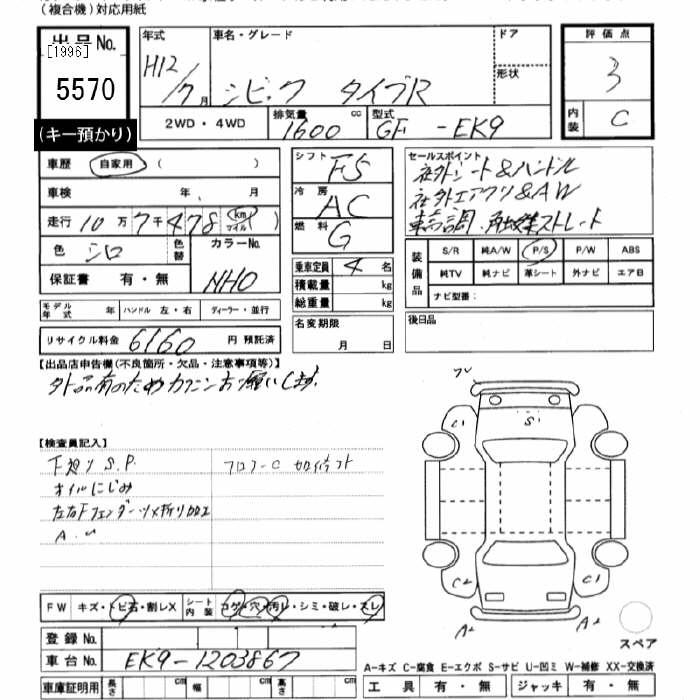 (複合機)対応用紙
出品No.
[1996]
5570
(キー預かり)
年式
H12/7月
車名・グレード
シビック タイプR
ドア
形状
評価点
3
内装
C
2WD・4WD
排気量
1600 cc
型式
GF -EK9
車歴 自家用 ( )
車検 年. 月
走行 10万7千478 km マイル
色 シロ 色替
カラーNo.
NH0
保証書 有・無
シフト F5
冷房 AC
燃料 G
乗車定員 4名
積載量 kg
総重量 kg
名変期限
月 日
セールスポイント
社外シート&ハンドル
社外エアクリ&AW
車高調
ストレート
装備品
S/R 純A/W P/S P/W ABS
純TV 純ナビ 革シート 外ナビ エアB
ナビ型番:
後日品
モデル年式 年 ハンドル 左・右 ディーラー・並行
リサイクル料金 6160 円 預託済
【出品店申告欄(不良箇所・欠品・注意事項等)】
外品有のためカクニンお願いします.
【検査員記入】
下廻り S.P.
フロアーC
オイルにじみ
左右Fフェンダーツメ折り加工
FW キズ・トビ石・割レX
シート内装 コゲ・穴・汚レ・シミ・破レ・スレ
登録No.
車台No. EK9-1203867
車庫証明用 長さ cm 幅 cm 高さ cm
C1
S1
C1
C2
C1
A2
A2
スペア
A-キズ C-腐食 E-エクボ S-サビ U-凹ミ W-補修 XX-交換済
工具 有・無 ジャッキ 有・無